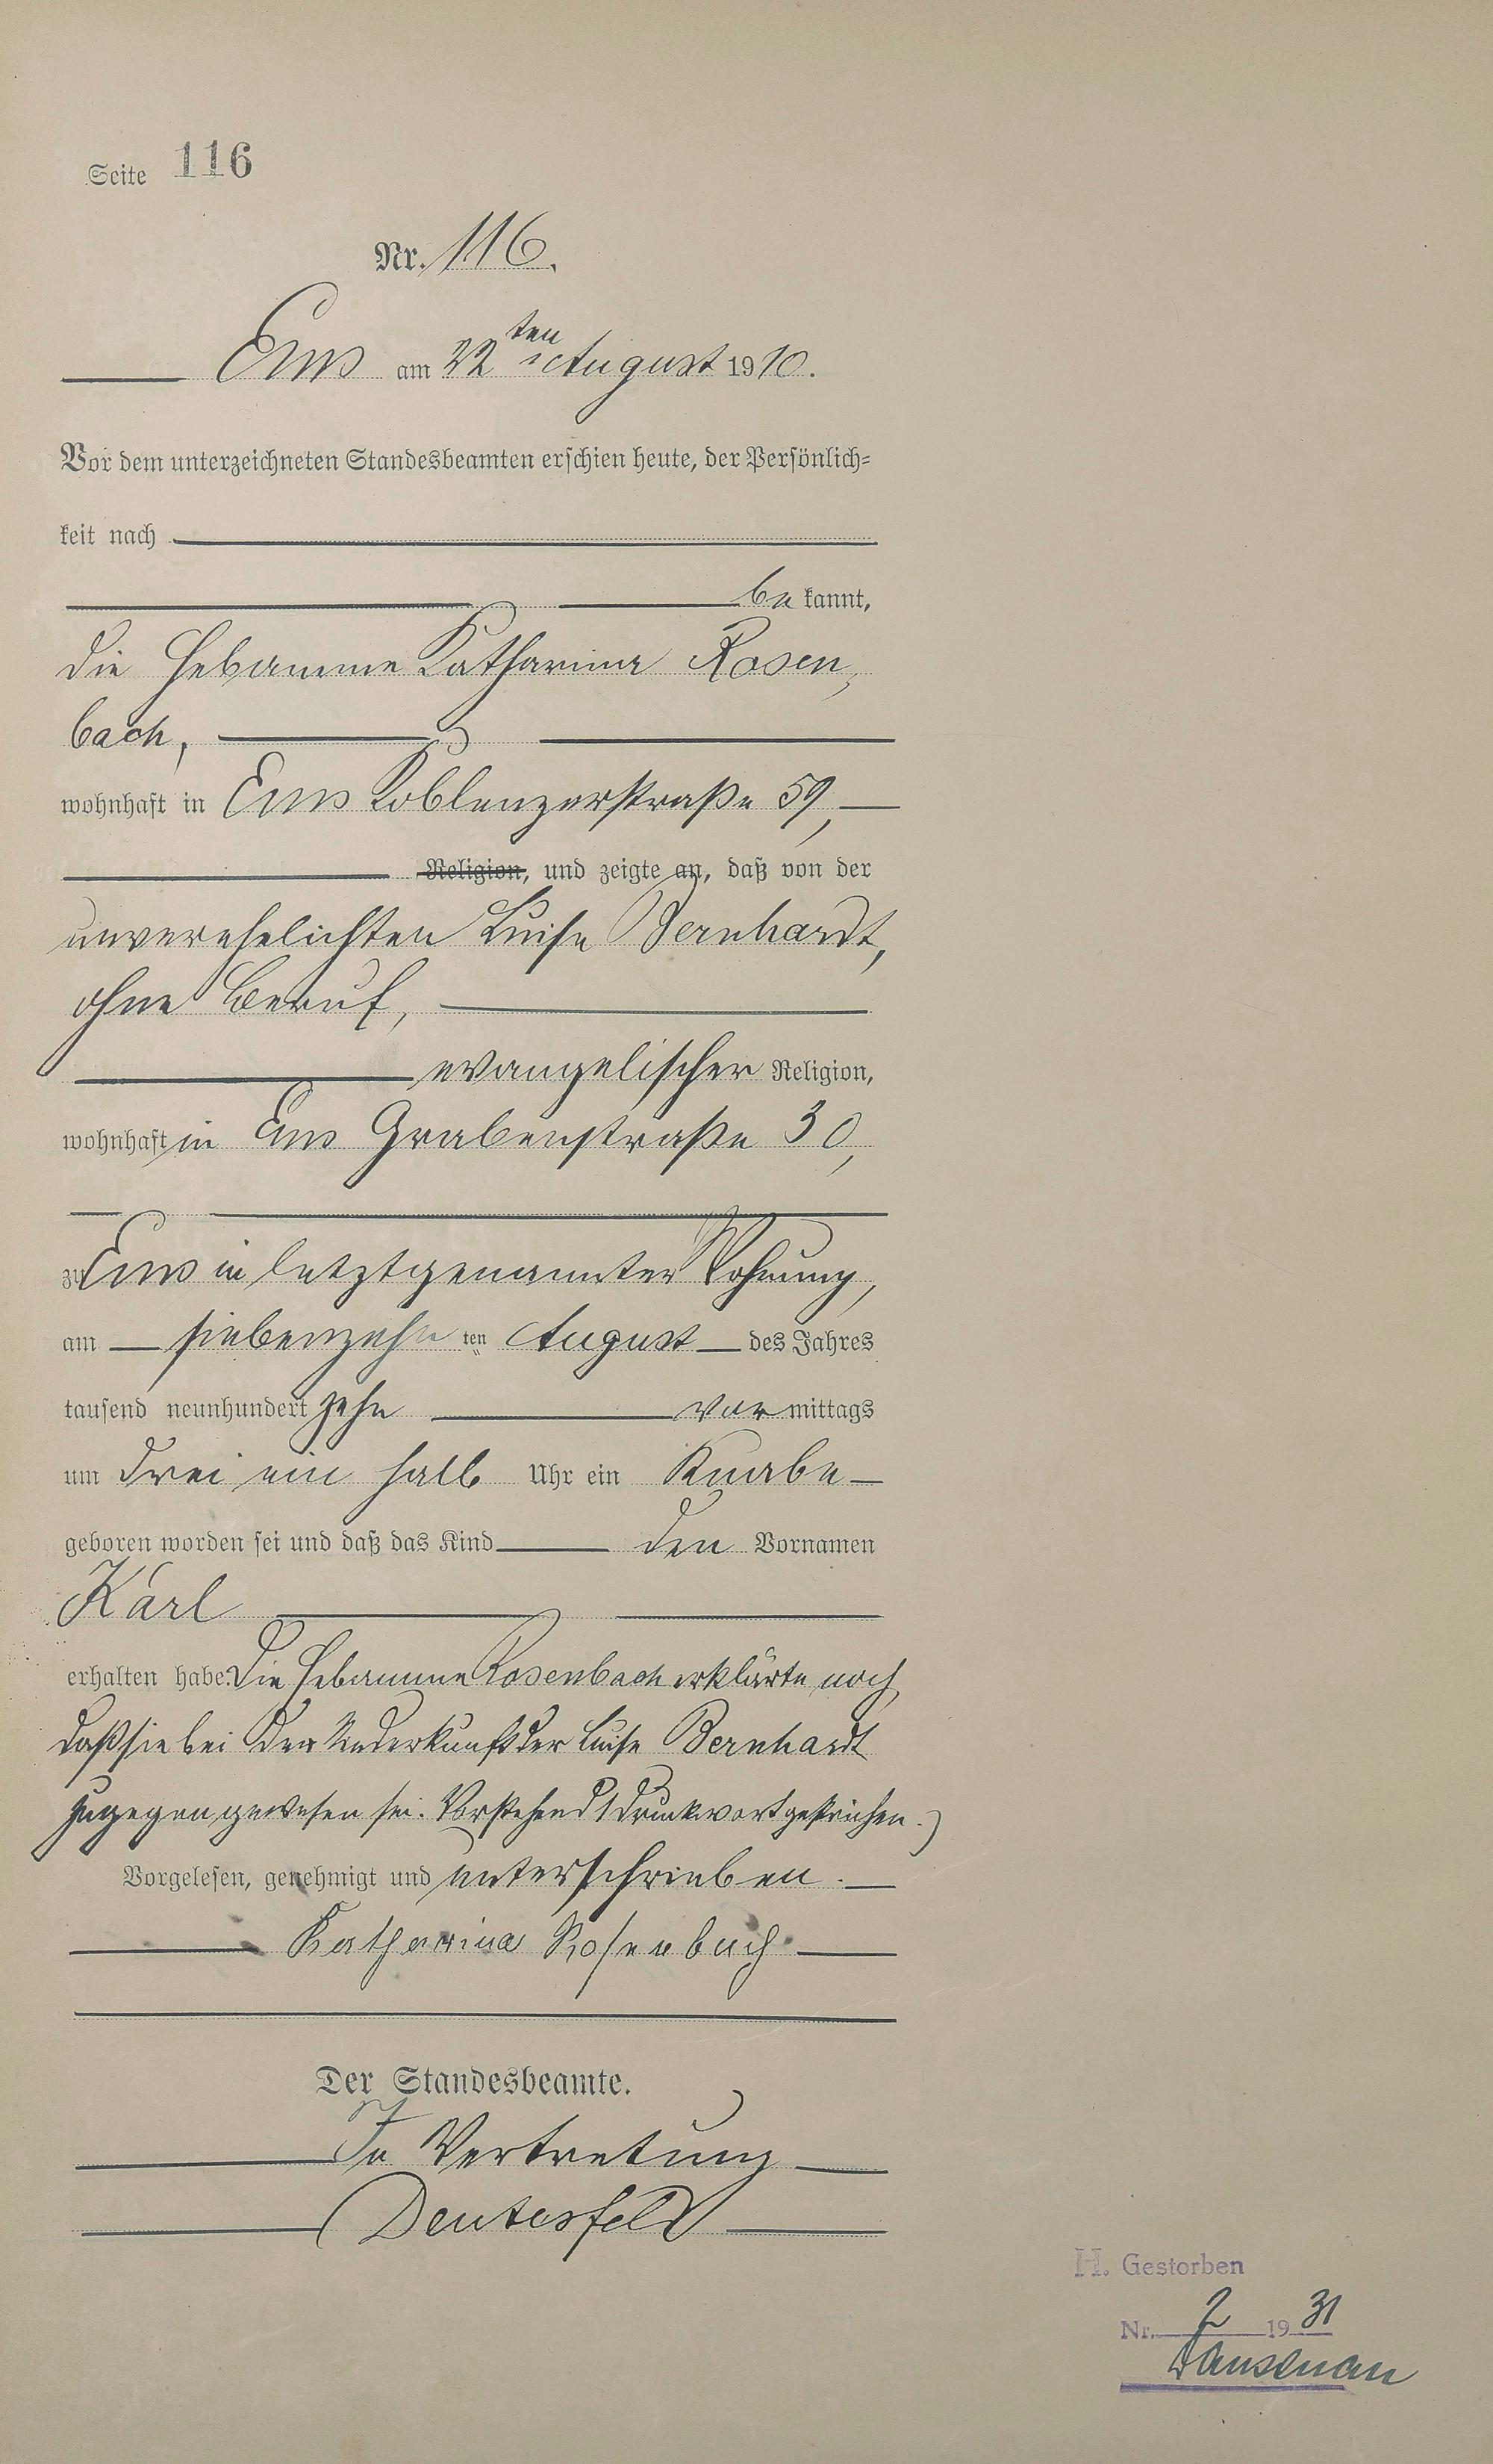 Seite 116
Nr. 116.
Ems am 22ten August 1910.
Vor dem unterzeichneten Standesbeamten erschien heute, der Persönlich=
keit nach
be kannt,
die Hebamme Katharina Rosen,
bach,
wohnhaft in Ems Koblenzerstraße 59,
Religion, und zeigte an, daß von der
unverehelichten Luise Bernhardt,
ohne Beruf,
evangelischer Religion,
wohnhaft in Ems Grabenstraße 30,
zu Ems in letztgenannter Wohnung,
am siebenzehn ten August des Jahres
tausend neunhundert zehn vor mittags
um drei ein halb Uhr ein Knabe
geboren worden sei und daß das Kind den Vornamen
Karl
erhalten habe. Die Hebamme Rosenbach erklärte noch,
daß sie bei der Niederkunft der Luise Bernhardt
zugegen gewesen sei. Vorstehend 1 Druckwort gestrichen.)
Vorgelesen, genehmigt und unterschrieben.
Katharina Rosenbach
Der Standesbeamte.
In Vertretung
H. Gestorben
Nr. 2 1931
Dausenau